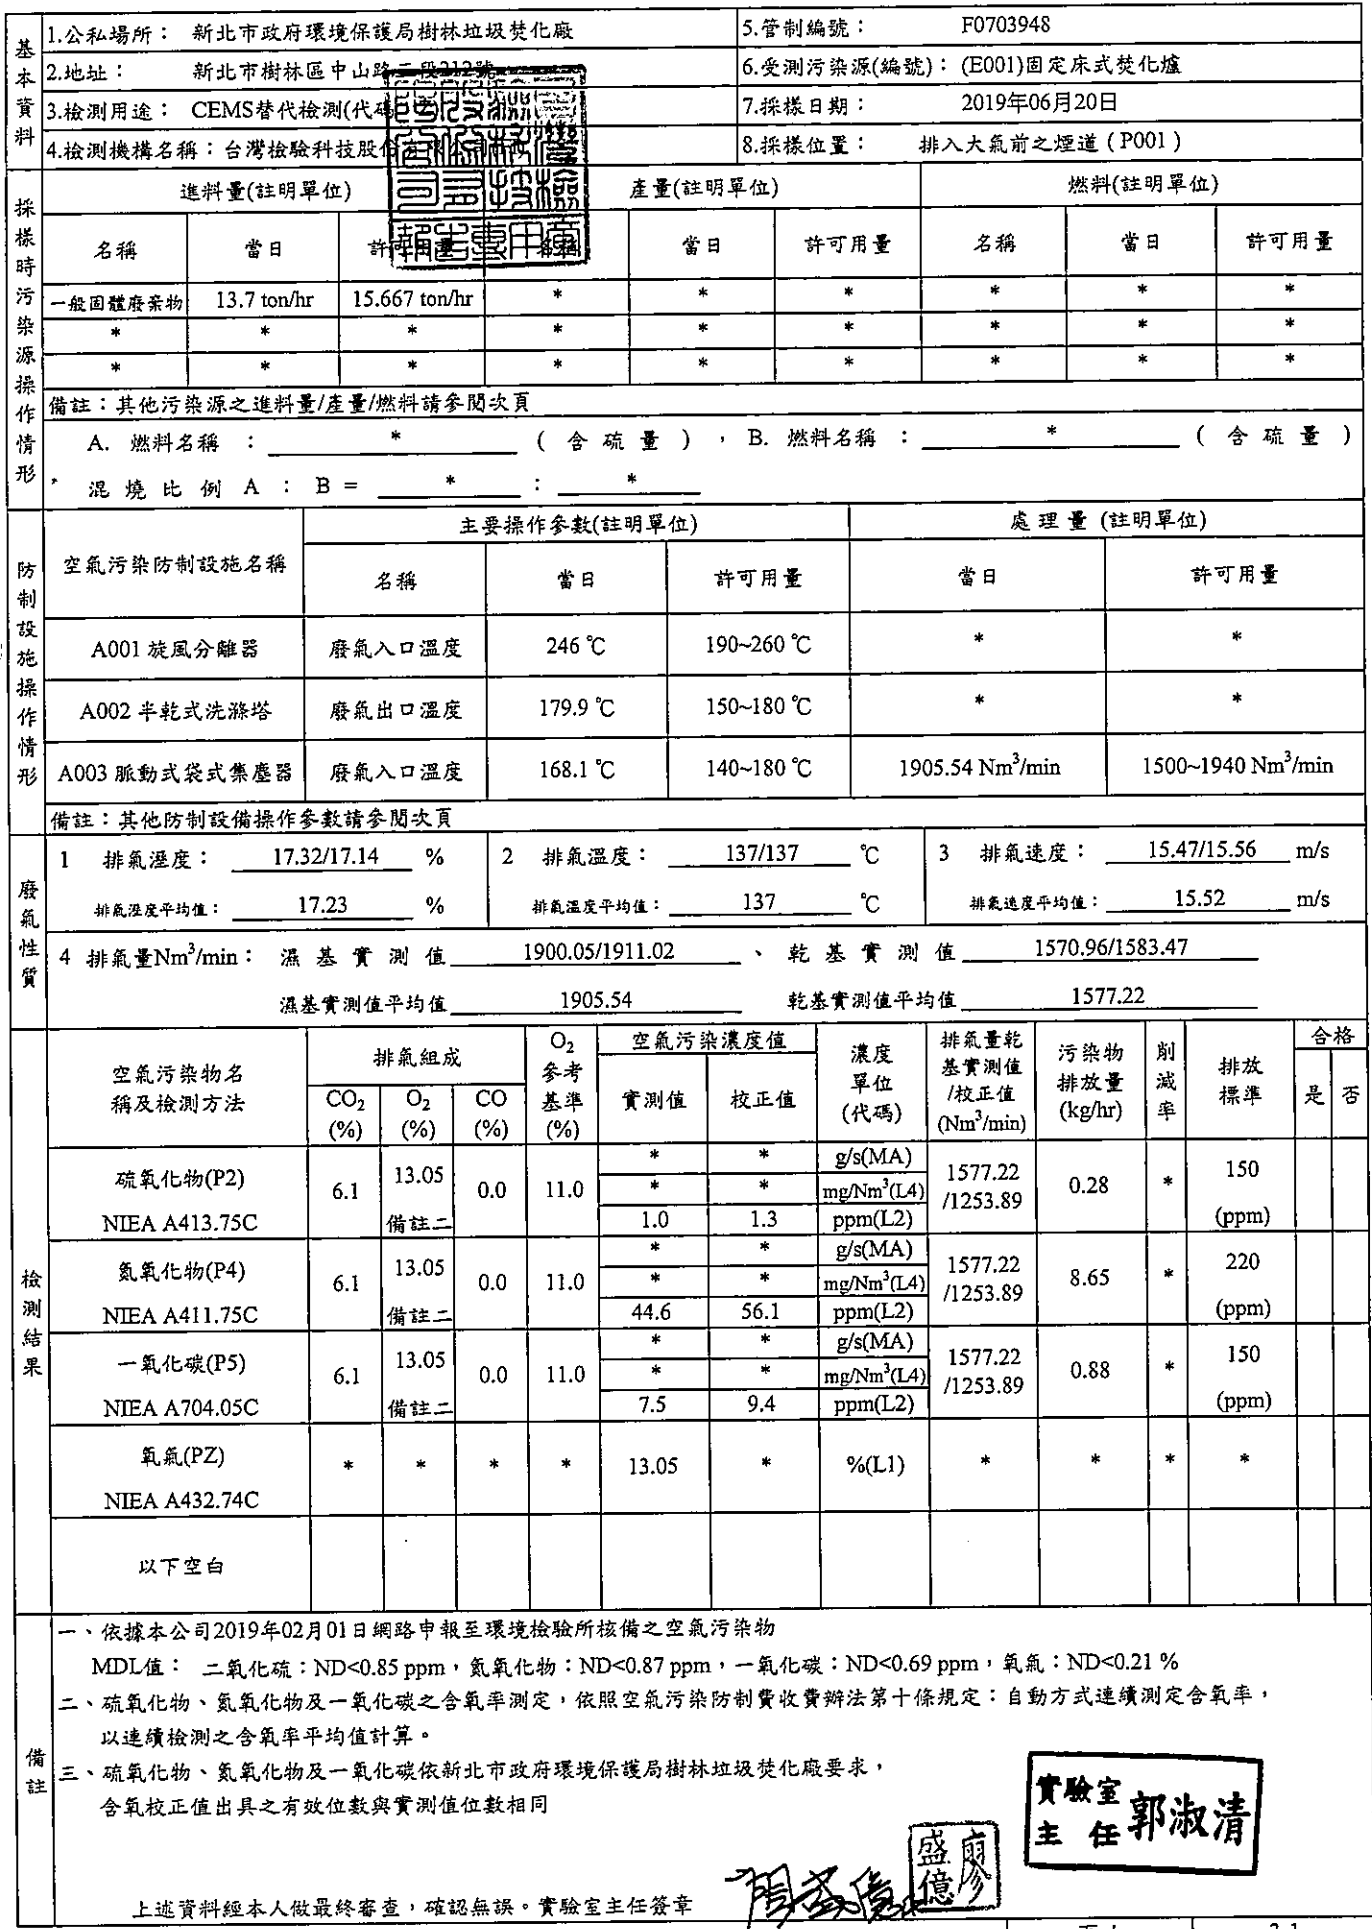 基本資料
1.公私場所： 新北市政府環境保護局樹林垃圾焚化廠
5.管制編號： F0703948
2.地址： 新北市樹林區中山路二段212號
6.受測污染源(編號)： (E001)固定床式焚化爐
3.檢測用途： CEMS替代檢測(代碼
7.採樣日期： 2019年06月20日
4.檢測機構名稱：台灣檢驗科技股份有限公司
8.採樣位置： 排入大氣前之煙道 ( P001 )
採樣時污染源操作情形
進料量(註明單位) 產量(註明單位) 燃料(註明單位)
名稱 當日 許可用量 名稱 當日 許可用量 名稱 當日 許可用量
一般固體廢棄物 13.7 ton/hr 15.667 ton/hr * * * * * *
* * * * * * * * *
* * * * * * * * *
備註：其他污染源之進料量/產量/燃料請參閱次頁
A. 燃料名稱 ： * ( 含 硫 量 ) ， B. 燃料名稱 ： * ( 含 硫 量 )
混 燒 比 例 A ： B = * ： *
防制設施操作情形
空氣污染防制設施名稱 主要操作參數(註明單位) 處 理 量 (註明單位)
名稱 當日 許可用量 當日 許可用量
A001 旋風分離器 廢氣入口溫度 246 ℃ 190~260 ℃ * *
A002 半乾式洗滌塔 廢氣出口溫度 179.9 ℃ 150~180 ℃ * *
A003 脈動式袋式集塵器 廢氣入口溫度 168.1 ℃ 140~180 ℃ 1905.54 Nm³/min 1500~1940 Nm³/min
備註：其他防制設備操作參數請參閱次頁
廢氣性質
1 排氣溼度： 17.32/17.14 % 2 排氣溫度： 137/137 ℃ 3 排氣速度： 15.47/15.56 m/s
排氣溼度平均值： 17.23 % 排氣溫度平均值： 137 ℃ 排氣速度平均值： 15.52 m/s
4 排氣量Nm³/min： 濕 基 實 測 值 1900.05/1911.02 、 乾 基 實 測 值 1570.96/1583.47
濕基實測值平均值 1905.54 乾基實測值平均值 1577.22
檢測結果
空氣污染物名稱及檢測方法 排氣組成 O₂參考基準(%) 空氣污染濃度值 濃度單位(代碼) 排氣量乾基實測值/校正值(Nm³/min) 污染物排放量(kg/hr) 削減率 排放標準 合格
CO₂(%) O₂(%) CO(%) 實測值 校正值 是 否
硫氧化物(P2) NIEA A413.75C 6.1 13.05 備註二 0.0 11.0 * * g/s(MA) 1577.22/1253.89 0.28 * 150 (ppm)
* * mg/Nm³(L4)
1.0 1.3 ppm(L2)
氮氧化物(P4) NIEA A411.75C 6.1 13.05 備註二 0.0 11.0 * * g/s(MA) 1577.22/1253.89 8.65 * 220 (ppm)
* * mg/Nm³(L4)
44.6 56.1 ppm(L2)
一氧化碳(P5) NIEA A704.05C 6.1 13.05 備註二 0.0 11.0 * * g/s(MA) 1577.22/1253.89 0.88 * 150 (ppm)
* * mg/Nm³(L4)
7.5 9.4 ppm(L2)
氧氣(PZ) NIEA A432.74C * * * * 13.05 * %(L1) * * * *
以下空白
備註
一、依據本公司2019年02月01日網路申報至環境檢驗所核備之空氣污染物
MDL值： 二氧化硫：ND<0.85 ppm，氮氧化物：ND<0.87 ppm，一氧化碳：ND<0.69 ppm，氧氣：ND<0.21 %
二、硫氧化物、氮氧化物及一氧化碳之含氧率測定，依照空氣污染防制費收費辦法第十條規定：自動方式連續測定含氧率，
以連續檢測之含氧率平均值計算。
三、硫氧化物、氮氧化物及一氧化碳依新北市政府環境保護局樹林垃圾焚化廠要求，
含氧校正值出具之有效位數與實測值位數相同
實驗室主任 郭淑清
廖盛億
上述資料經本人做最終審查，確認無誤。實驗室主任簽章